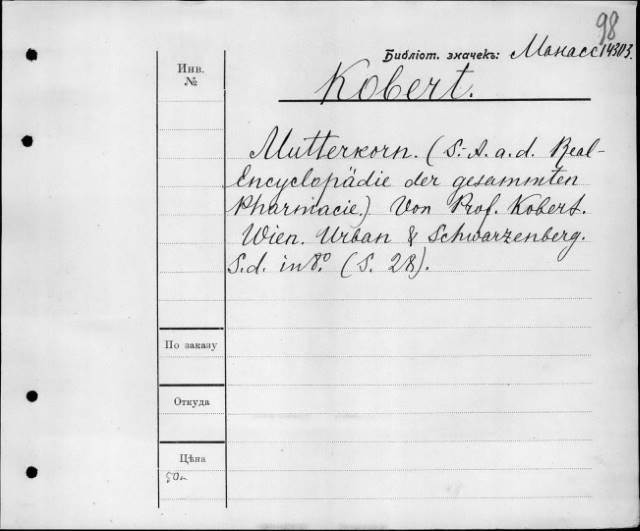 98
Библіот. значекъ: Манасс 14303.
Инв.
№
Kobert.
Mutterkorn. (S.-A. a. d. Real-
Encyclopädie der gesammten
Pharmacie.) Von Prof. Kobert.
Wien. Urban & Schwarzenberg.
S.d. in 8.° (S. 28).
По заказу
Откуда
Цѣна
50